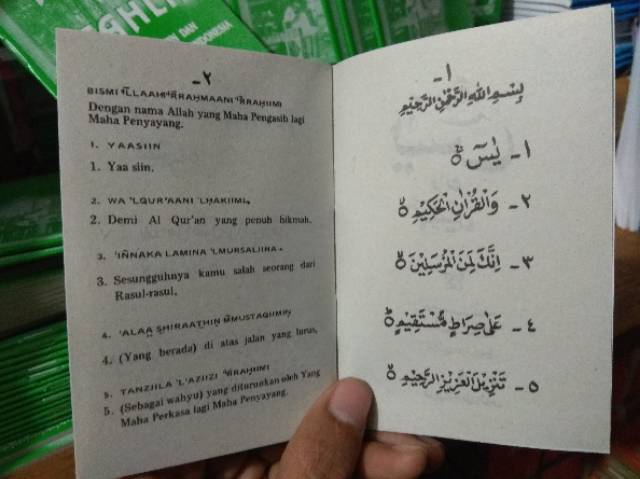 DAN
-١
بِسْمِ اللهِ الرَّحْمٰنِ الرَّحِيْمِ
١- يٰسٓ ۞
٢- وَالْقُرْاٰنِ الْحَكِيْمِ ۞
٣- اِنَّكَ لَمِنَ الْمُرْسَلِيْنَ ۞
٤- عَلٰى صِرَاطٍ مُّسْتَقِيْمٍ ۞
٥- تَنْزِيْلَ الْعَزِيْزِ الرَّحِيْمِ ۞
-٢
BISMI 'LLAAHI 'RRAHMAANI 'RRAHIIMI
Dengan nama Allah yang Maha Pengasih lagi
Maha Penyayang.
1. YAASIIN
1. Yaa siin.
2. WA 'LQUR'AANI 'LHAKIIMI.
2. Demi Al Qur'an yang penuh hikmah.
3. 'INNAKA LAMINA 'LMURSALIINA.
3. Sesungguhnya kamu salah seorang dari
Rasul-rasul.
4. 'ALAA SHIRAATHIN MMUSTAQIIMIN
4. (Yang berada) di atas jalan yang lurus,
5. TANZIILA 'L'AZIIZI 'RRAHIIMI
5. (Sebagai wahyu) yang diturunkan oleh Yang
Maha Perkasa lagi Maha Penyayang.